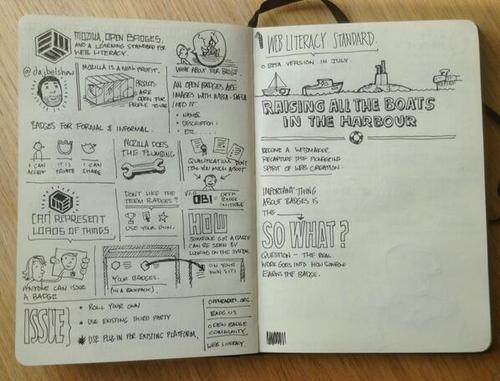 MOZILLA, OPEN BADGES,
AND A LEARNING STANDARD FOR
WEB LITERACY.
@dajbelshaw
MOZILLA IS A NON PROFIT.
PROJECTS
ARE
OPEN FOR
WHAT ABOUT FOR BADGES?
AN OPEN BADGES ARE
IMAGES WITH META-DATA
INTO IT
• NAME
• DESCRIPTION
• ETC.
BADGES FOR FORMAL & INFORMAL.
I CAN
ACCEPT
IT IS
PRIVATE
I CAN
SHARE
MOZILLA DOES
THE PLUMBING
QUALIFICATIONS DON'T
TELL YOU MUCH ABOUT
CAN REPRESENT
LOADS OF THINGS
DON'T LIKE THE
TERM BADGES?
USE YOUR OWN.
OBI
OPEN
BADGE
INITIATIVE
HOW
SOMEONE GOT A BADGE
CAN BE SEEN BY
LOOKING ON THE SYSTEM
ANYONE CAN ISSUE
A BADGE
YOUR BADGES.
(IN A BACKPACK).
ON YOUR
OWN SITE
ISSUE
• ROLL YOUR OWN
• USE EXISTING THIRD PARTY
• USE PLUG-IN FOR EXISTING PLATFORM.
OPENBADGES.ORG
BADG.US
OPEN BADGE
COMMUNITY
WEB LITERACY
WEB LITERACY STANDARD.
○ BETA VERSION IN JULY.
RAISING ALL THE BOATS
IN THE HARBOUR
BECOME A WEBMAKER.
RECAPTURE THE PIONEERING
SPIRIT OF WEB CREATION
IMPORTANT THING
ABOUT BADGES IS
THE
SO WHAT?
QUESTION - THE REAL
WORK GOES INTO HOW SOMEONE
EARNS THE BADGE.